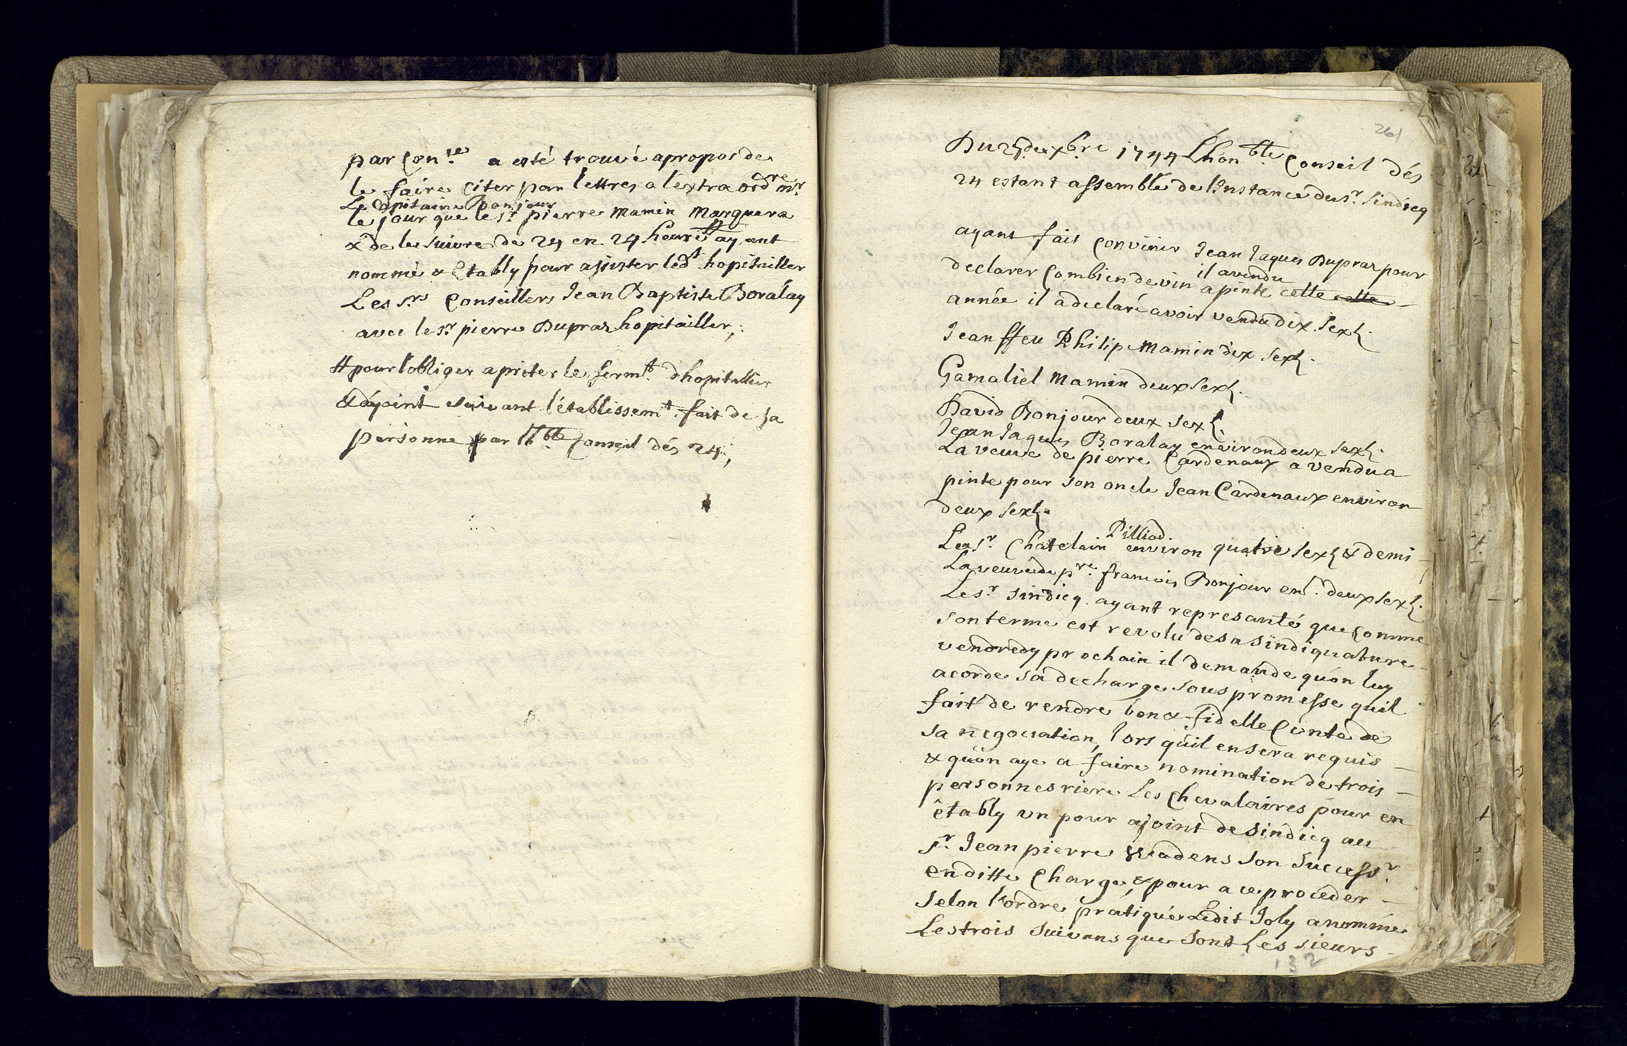 par Con.re a esté trouvé apropos de
le faire citer par lettres a lextra ordre mr
Le Capitaine Bonjour
le jour que le sr. pierre Mamin Marquera
& de les suivre de 24 en 24 heures # ayant
nommé & Etably pour assister ledt. hopitallier
Les srs Conseillers Jean Baptiste Boralay
avec le sr. pierre Dupraz hopitallier,;
# pour lobliger a prèter le sermt. dhopitallier
adjoint suivant l'établissemt. fait de sa
personne par lhble Conseil dés 24;,
261
Du 27 dexbre 1744 Lhonble Conseil dés
24 estant assemblé de linstance du sr. sindicq
ayant fais Convinir Jean Jaques Dupraz pour
declarer Combien de vin il a vendu a pinte cette cette
année il à declaré avoir vendu dix sex.
Jean ffeu Philipe Mamin dix sex.
Gamaliel Mamin deux sex.
David Bonjour deux sex.
Jean Jaques Boralay environ deux sex.
La veuve de pierre Cardenaux a vendu a
pinte pour son oncle Jean Cardenaux environ
deux sex.
Le sr. Chatelain Pilliod environ quatre sex & demi
La veuve de pre. francois Bonjour en. deux sex.
Le sr. sindicq ayant representé que comme
son terme est revolu de sa sindiquature
vendredy prochain il demande quon luy
acorde sa decharge sous promesse quil
fait de rendre bon & fidelle Conte de
sa negociation, lors quil en sera requis
& quon aye a faire nomination de trois
personnes riere Les Chevalaires pour en
êtably un pour ajoint de sindicq au
sr. Jean pierre Wadens son successr.
en ditte Charge, & pour a ce procéder
selon l'ordre pratiqué Ledit Joly a nommé
Les trois suivans que sont Les sieurs
132